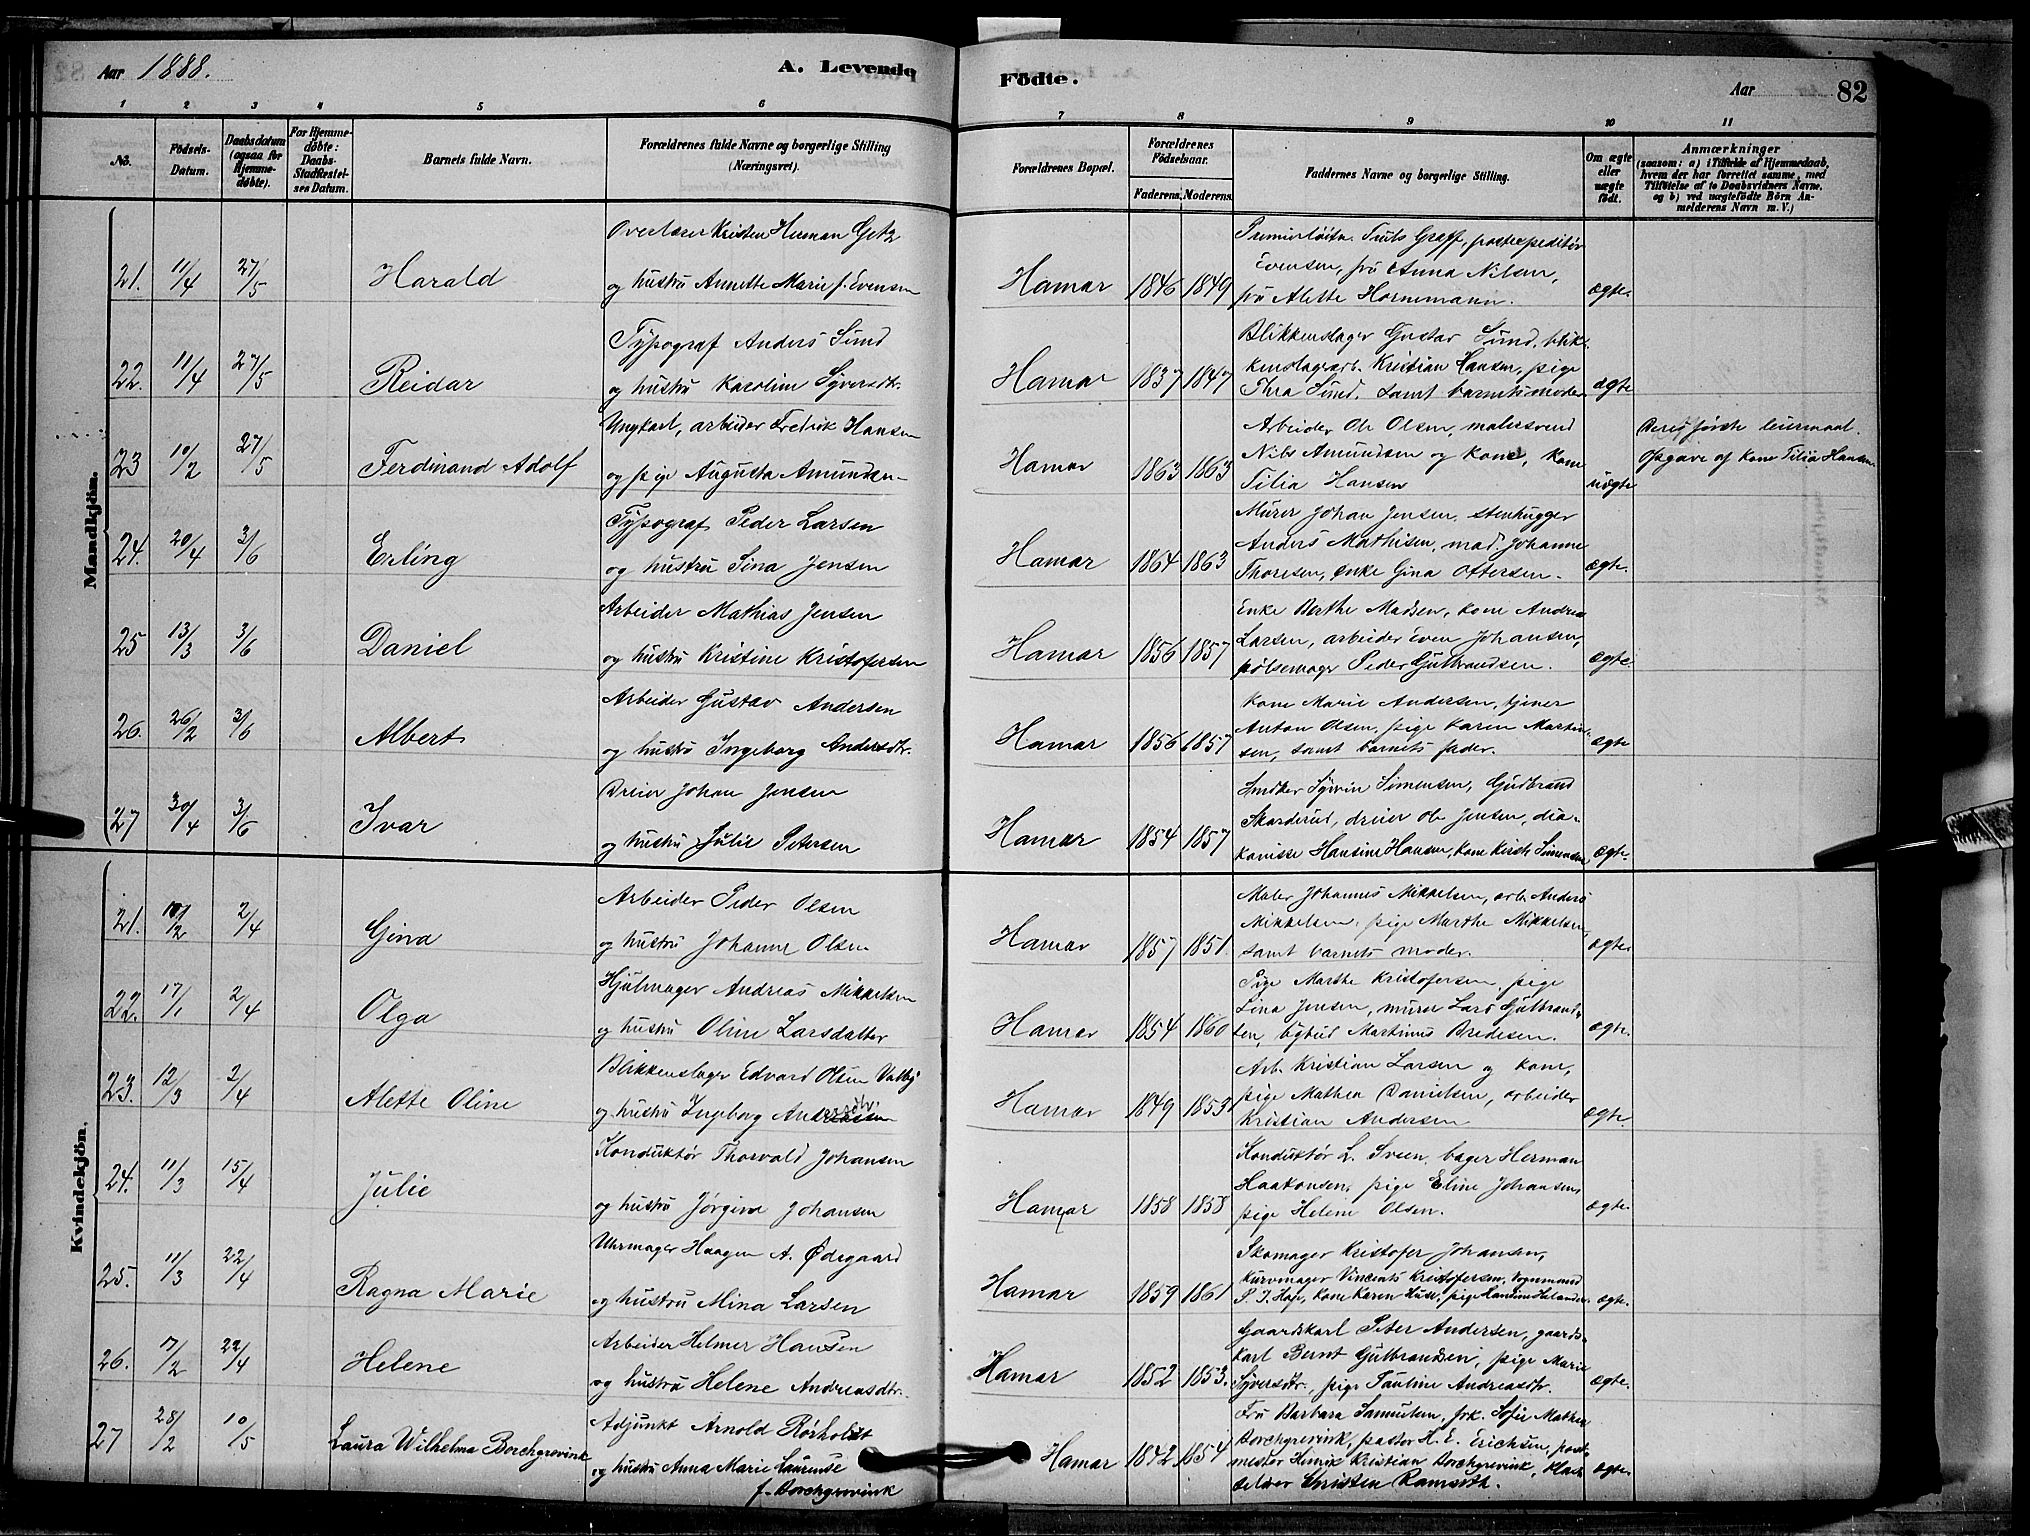 Aar 1888.
A. Levende Födte.
Aar
82
1 2 3 4 5 6 7 8 9 10 11
No.
Födsels-Datum.
Daabsdatum (ogsaa for Hjemmedøbte).
For Hjemmedøbte: Daabs-Stadfæstelses Datum.
Barnets fulde Navn.
Forældrenes fulde Navne og borgerlige Stilling (Næringsvei).
Forældrenes Bopæl.
Forældrenes Födselsaar.
Faderens. Moderens.
Faddernes Navne og borgerlige Stilling.
Om ægte eller uægte født.
Anmærkninger
(saasom: a) i Tilfælde af Hjemmedaab, hvem der har forrettet samme, med Tilføielse af to Daabsvidners Navne, og b) ved uægtefødte Börn Anmelderens Navn m. V.)
Mandkjön.
21. 11/4 27/5 Harald
Overlærer Kristen Herman Getz
og hustru Annette Marie f. Evensen
Hamar 1846 1849
Premierløitn. Truls Graff, postexpeditør
Evensen, fru Anna Nilsen,
fru Alette Hornemann.
ægte.
22. 11/4 27/5 Reidar
Typograf Anders Sund
og hustru Karoline Syversdtr.
Hamar 1837 1847
Blikkenslager Gustav Sund, blik-
kenslagerarb. Kristian Hansen, pige
Thea Sund, samt barnets moder
ægte
23 10/2 27/5 Ferdinand Adolf
Ungkarl, arbeider Fredrik Hansen
og pige Augusta Amundsen
Hamar 1863 1863
Arbeider Ole Olsen, malersvend
Nils Amundsen og kone, kone
Tilia Hansen
uægte
Deres første leiermaal.
Opgave af kone Tilia Hansen
24. 20/4 3/6 Erling
Typograf Peder Larsen
og hustru Sina Jensen
Hamar 1864 1863
Murer Johan Jensen, stenhugger
Anders Mathisen, mad. Johanne
Thoresen, enke Gina Ottersen.
ægte.
25 13/3 3/6 Daniel
Arbeider Mathias Jensen
og hustru Kristine Kristofersen
Hamar 1856 1857
Enke Berthe Madsen, kone Andrea
Larsen, arbeider Even Johansen,
pølsemager Peder Gulbrandsen.
ægte.
26. 26/2 3/6 Albert
Arbeider Gustav Andersen
og hustru Ingeborg Andersdtr.
Hamar 1856 1857
Kone Marie Andersen, tjener
Anton Olsen, pige Karen Martin-
sen, samt barnets fader.
ægte
27 30/4 3/6 Ivar
Dreier Johan Jensen
og hustru Julie Petersen
Hamar 1854 1857
Snedker Simensen, Gudbrand
Skarderud, dreier Ole Jensen, dia-
konisse Hansine Hansen, kone Simensen
ægte.
Kvindekjön.
21. 10/2 2/4 Gina
Arbeider Peder Olsen
og hustru Johanne Olsen
Hamar 1857 1851.
Maler Johannes Mikkelsen, arb. Anders
Mikkelsen, pige Marthe Mikkelsen,
samt barnets moder.
ægte.
22. 17/1 2/4 Olga
Hjulmager Andreas Mikkelsen
og hustru Oline Larsdatter
Hamar 1854 1860
Pige Marthe Kristofersen, pige
Lina Jensen, murer Lars Gulbrand-
sen, bybud Martinus Bredesen.
ægte.
23. 12/3 2/4 Alette Oline
Blikkenslager Edvard Olsen Valby
og hustru Ingeborg Andersdtr.
Hamar 1849 1853
Arb. Kristian Larsen og kone,
pige Mathea Danielsen, arbeider
Kristian Andersen
ægte.
24. 11/3 15/4 Julie
Konduktør Thorvald Johansen
og hustru Jørgine Johansen
Hamar 1858 1858
Konduktør L. Sveen, bager Herman
Haakonsen, pige Eline Johansen,
pige Helene Olsen.
ægte.
25. 11/3 22/4 Ragna Marie
Uhrmager Haagen A. Ødegaard
og hustru Mina Larsen
Hamar 1859 1861
Skomager Kristofer Johansen,
Kurvmager Vincents Kristofersen, Vognmand
P. J. Hoje, kone Karen Huse, pige
ægte.
26. 17/2 22/4 Helene
Arbeider Helmer Hansen
og hustru Helene Andreasdtr.
Hamar 1852 1853.
Gaardskarl Peter Andersen, gaards-
karl Bernt Gulbrandsen, pige Marie
Syversdtr., pige Pauline Andreasdtr.
ægte.
27 28/2 10/5 Laura Wilhelma Borchgrevink
Adjunkt Arnold Rørholdt
og hustru Anna Marie Laurense
f. Borchgrevink
Hamar 1842 1854
Fru Barbara Samuelsen, frk. Sofie Mathea
Borchgrevink, pastor H. E. Erichsen, post-
mester Henrik Kristian Borchgrevink,
Christen Ramseth.
ægte.